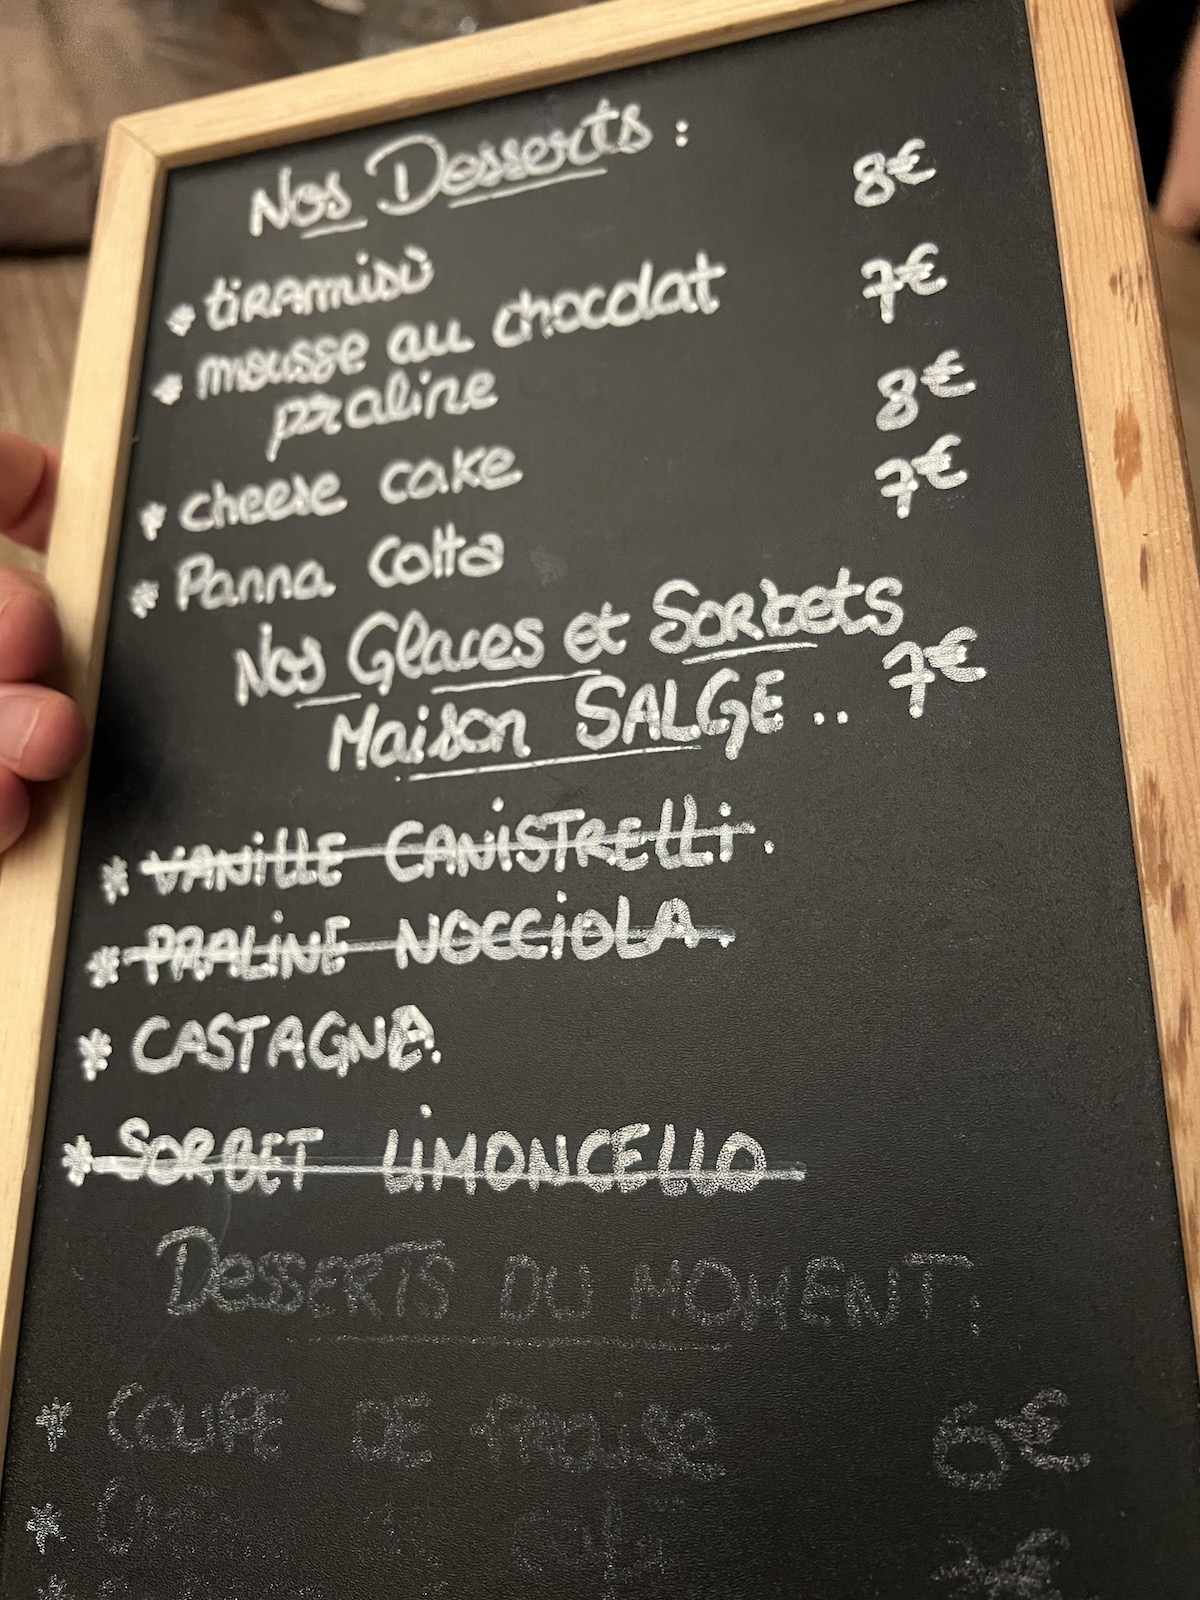 Nos Desserts :
* tiramisù 8€
* mousse au chocolat 7€
praline
* cheese cake 8€
* Panna Cotta 7€
Nos Glaces et Sorbets
Maison SALGE .. 7€
* VANiLLE CANiSTRELLi.
* PRALINE NOCCiOLA.
* CASTAGNA.
* SORBET LiMONCELLO
DESSERTS DU MOMENT.
* COUPE DE fraise 6€
*
*